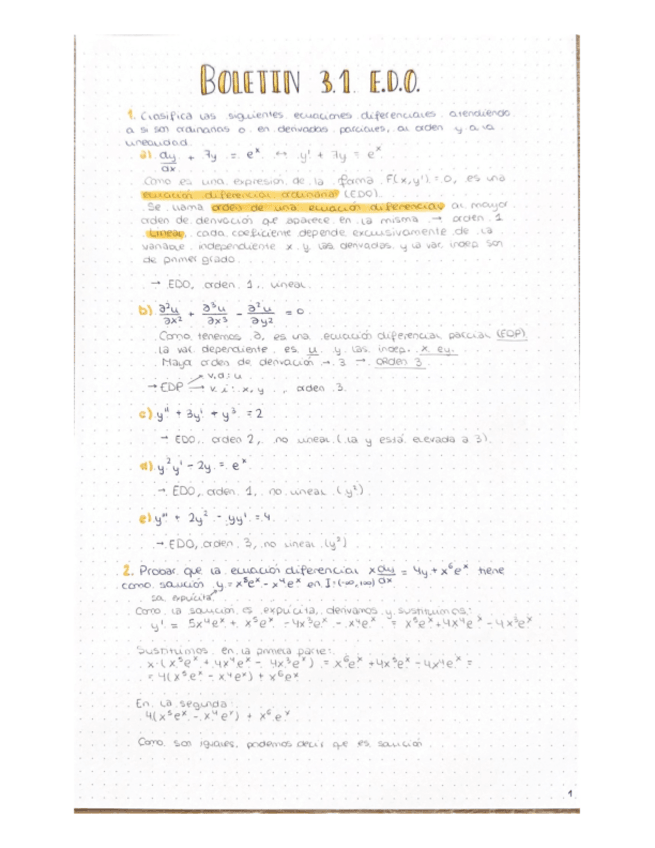 BOLETIN 3.1. E.D.O.
1. Clasifica las siguientes ecuaciones diferenciales atendiendo
a si son ordinarias o en derivadas parciales, al orden y a la
linealidad.
a) dy/dx + 7y = e^x ↔ y' + 7y = e^x
Como es una expresión de la forma F(x,y') = 0, es una
ecuación diferencial ordinaria (EDO).
Se llama orden de una ecuación diferencial al mayor
orden de derivación que aparece en la misma → orden 1
Lineal, cada coeficiente depende exclusivamente de la
variable independiente x y las derivadas y la var. indep son
de primer grado.
→ EDO, orden 1, lineal.
b) ∂²u/∂x² + ∂³u/∂x³ - ∂²u/∂y² = 0
Como tenemos ∂, es una ecuación diferencial parcial (EDP)
la var. dependiente es u y las indep. x e y.
Mayor orden de derivación → 3 → orden 3
→ EDP → v.d: u
→ v.i: x, y, orden 3.
c) y'' + 3y' + y³ = 2
→ EDO, orden 2, no lineal (la y está elevada a 3).
d) y²y' - 2y = e^x
→ EDO, orden 1, no lineal (y²)
e) y''' + 2y² - yy' = 4
→ EDO, orden 3, no lineal (y²)
2. Probar que la ecuación diferencial x dy/dx = 4y + x⁶e^x tiene
como solución y = x⁵e^x - x⁴e^x en I = (-∞, +∞)
sol. explícita
Como la solución es explícita, derivamos y sustituimos:
y' = 5x⁴e^x + x⁵e^x - 4x³e^x - x⁴e^x = x⁵e^x + 4x⁴e^x - 4x³e^x
Sustituimos en la primera parte:
x·(x⁵e^x + 4x⁴e^x - 4x³e^x) = x⁶e^x + 4x⁵e^x - 4x⁴e^x =
= 4(x⁵e^x - x⁴e^x) + x⁶e^x
En la segunda
4(x⁵e^x - x⁴e^x) + x⁶e^x
Como son iguales, podemos decir que es solución
1